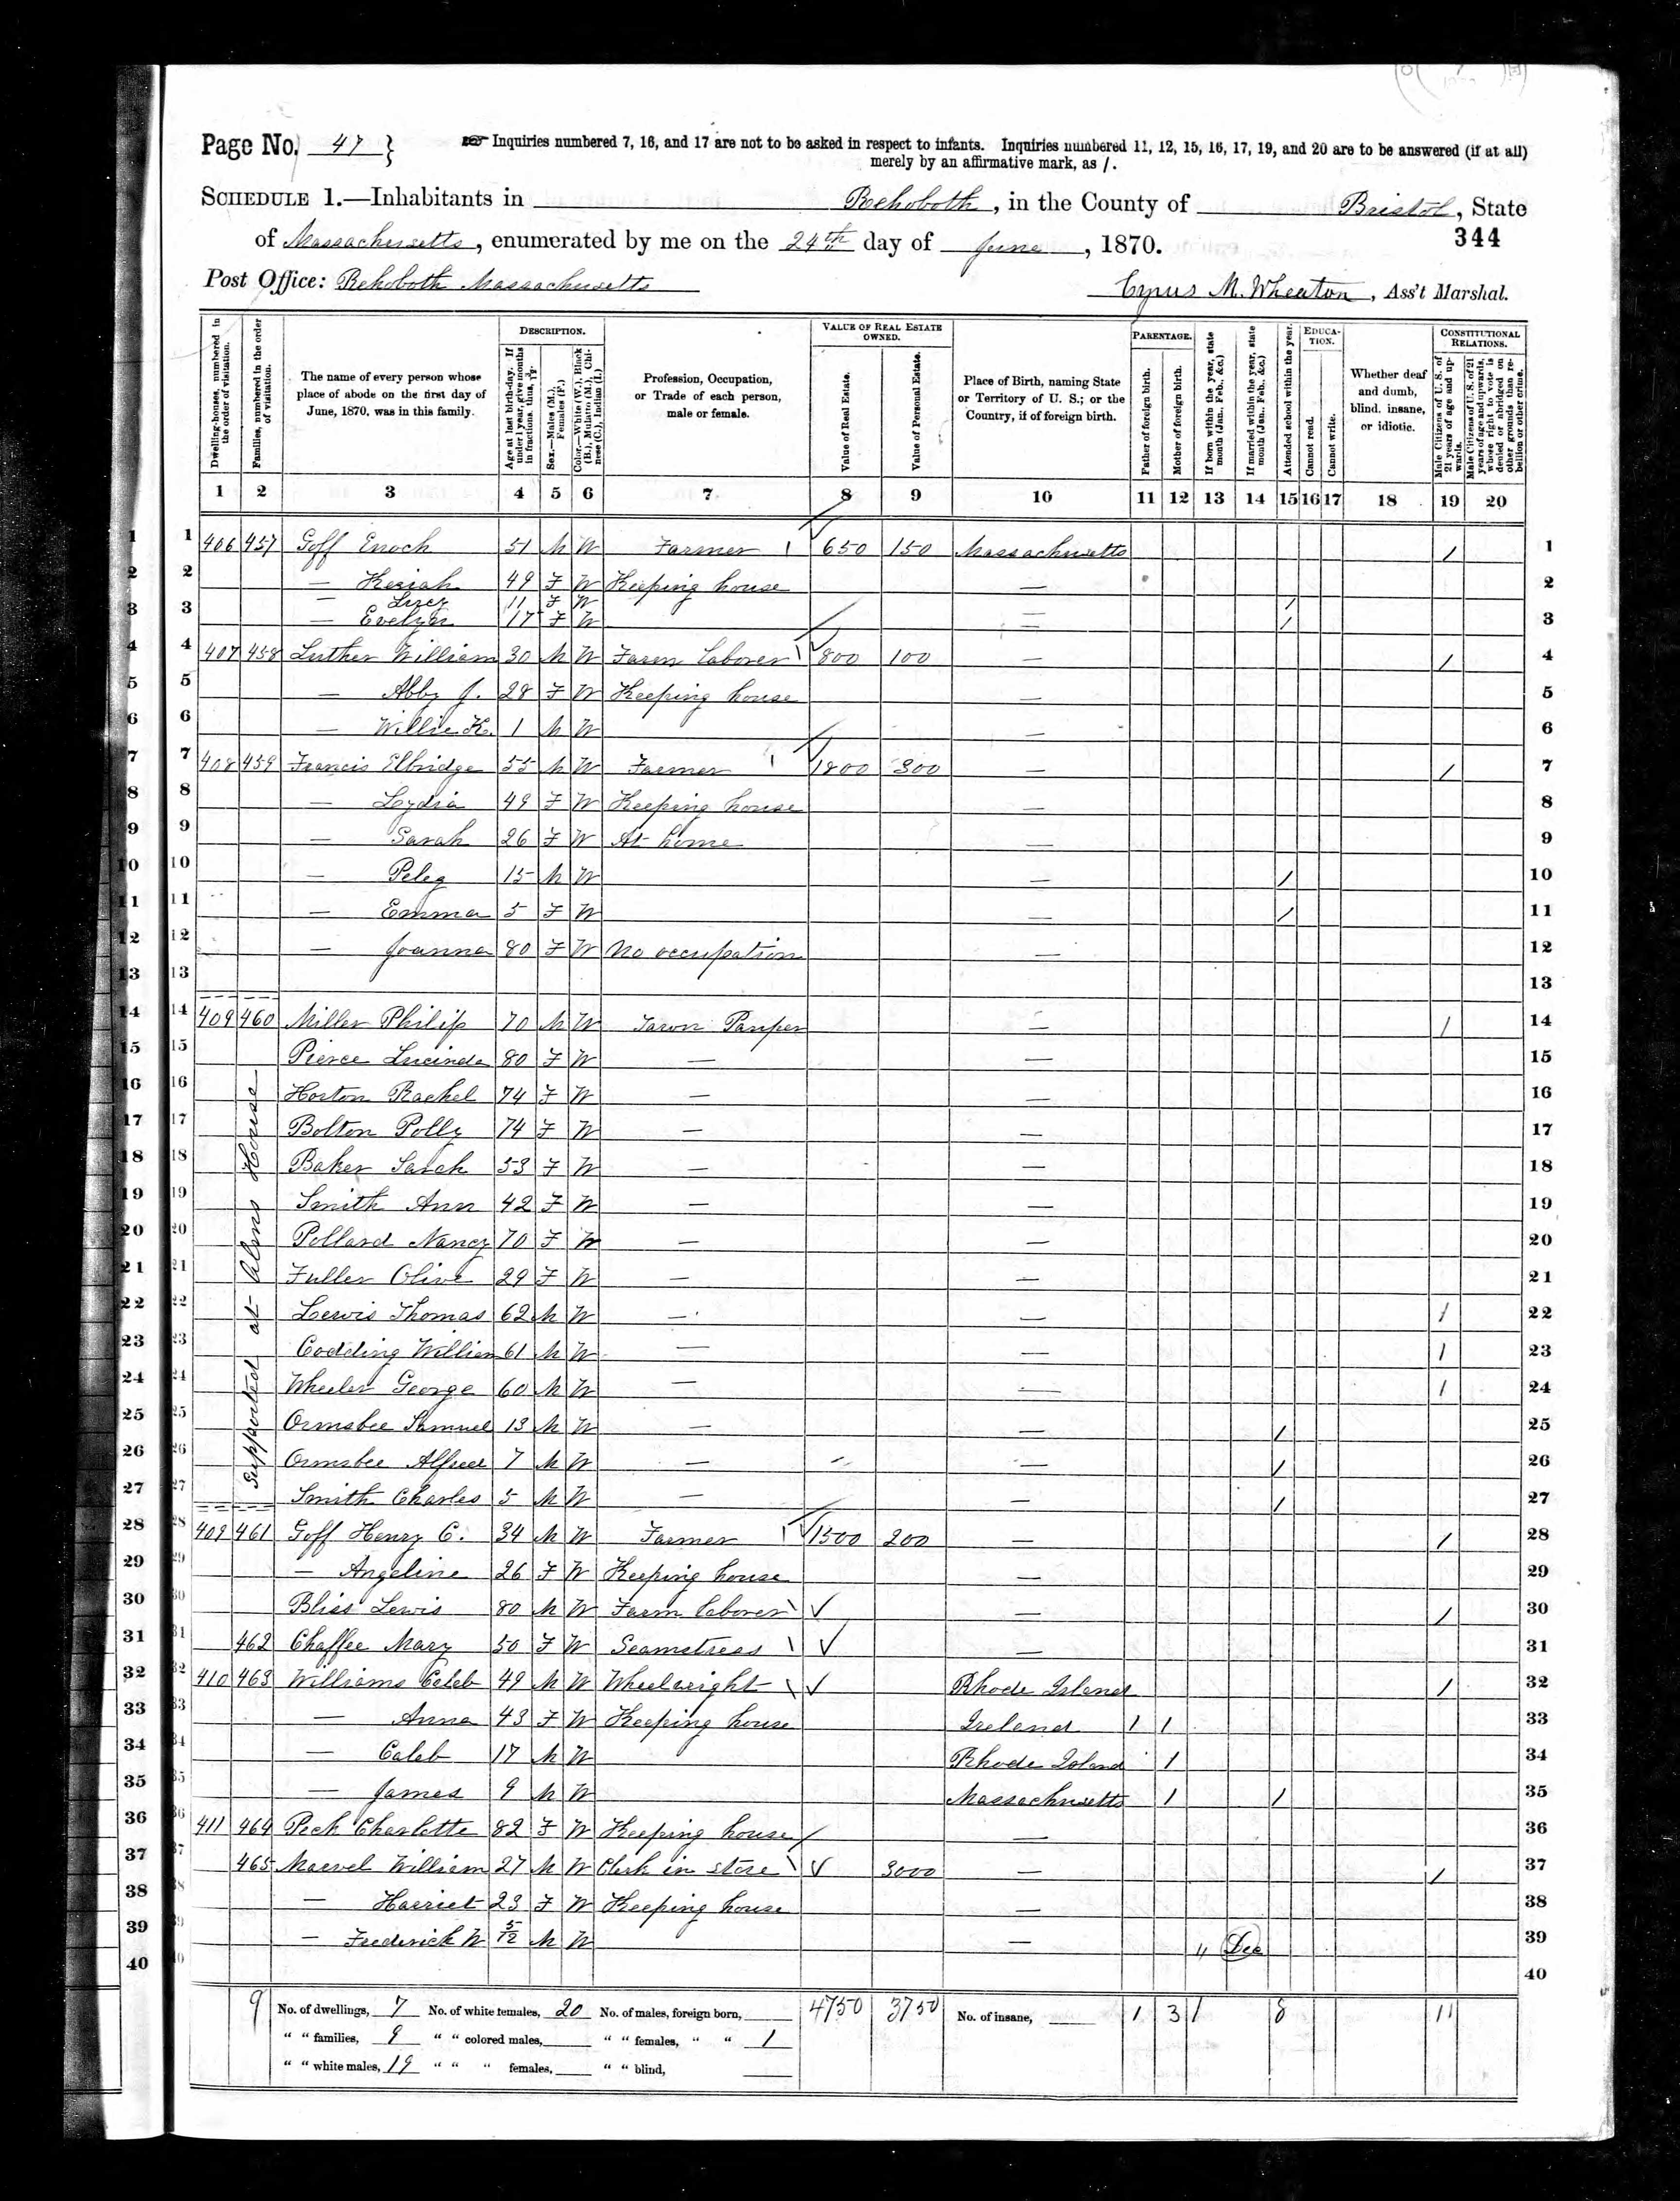 Page No. 47 }
Inquiries numbered 7, 16, and 17 are not to be asked in respect to infants. Inquiries numbered 11, 12, 15, 16, 17, 19, and 20 are to be answered (if at all)
merely by an affirmative mark, as /.
SCHEDULE 1.—Inhabitants in Rehoboth, in the County of Bristol, State
of Massachusetts, enumerated by me on the 24th day of June, 1870.
344
Post Office: Rehoboth Massachusetts
Cyrus M. Wheaton, Ass't Marshal.
Dwelling-houses, numbered in the order of visitation.
Families, numbered in the order of visitation.
The name of every person whose place of abode on the first day of June, 1870, was in this family.
DESCRIPTION.
Age at last birth-day. If under 1 year, give months in fractions, thus, 3/12
Sex.—Males (M.), Females (F.)
Color.—White (W.), Black (B.), Mulatto (M.), Chinese (C.), Indian (I.)
Profession, Occupation, or Trade of each person, male or female.
VALUE OF REAL ESTATE OWNED.
Value of Real Estate.
Value of Personal Estate.
Place of Birth, naming State or Territory of U. S.; or the Country, if of foreign birth.
PARENTAGE.
Father of foreign birth.
Mother of foreign birth.
If born within the year, state month (Jan., Feb., &c.)
If married within the year, state month (Jan., Feb., &c.)
Attended school within the year.
EDUCATION.
Cannot read.
Cannot write.
Whether deaf and dumb, blind, insane, or idiotic.
CONSTITUTIONAL RELATIONS.
Male Citizens of U. S. of 21 years of age and upwards.
Male Citizens of U. S. of 21 years of age and upwards, whose right to vote is denied or abridged on other grounds than rebellion or other crime.
1 2 3 4 5 6 7 8 9 10 11 12 13 14 15 16 17 18 19 20
1 406 457 Goff Enoch 51 M W Farmer 650 150 Massachusetts / 1
2 — Keziah 49 F W Keeping house — 2
— Lucy 11 F W — /
3 — Evelyn 17 F W — / 3
4 407 458 Luther William 30 M W Farm laborer 800 100 — / 4
5 — Abby J. 28 F W Keeping house — 5
6 — Willie K. 1 M W — 6
7 408 459 Francis Elbridge 55 M W Farmer 1800 300 — / 7
8 — Lydia 49 F W Keeping house — 8
9 — Sarah 26 F W At home — 9
10 — Peleg 15 M W — / 10
11 — Emma 5 F W — / 11
12 — Joanna 80 F W No occupation — 12
13 13
14 409 460 Miller Philip 70 M W Town Pauper — / 14
Supported at Alms House
15 Pierce Lucinda 80 F W — — 15
16 Horton Rachel 74 F W — — 16
17 Bolton Polly 74 F W — — 17
18 Baker Sarah 53 F W — — 18
19 Smith Ann 42 F W — — 19
20 Pollard Nancy 70 F W — — 20
21 Fuller Olive 29 F W — — 21
22 Lewis Thomas 62 M W — — / 22
23 Codding William 61 M W — — / 23
24 Wheeler George 60 M W — — / 24
25 Ormsbee Samuel 13 M W — — / 25
26 Ormsbee Alfred 7 M W — — / 26
27 Smith Charles 5 M W — — / 27
28 409 461 Goff Henry C. 34 M W Farmer 1500 200 — / 28
29 — Angeline 26 F W Keeping house — 29
30 Bliss Lewis 80 M W Farm laborer — / 30
31 462 Chaffee Mary 50 F W Seamstress — 31
32 410 463 Williams Caleb 49 M W Wheelwright Rhode Island / 32
33 — Anna 43 F W Keeping house Ireland / / 33
34 — Caleb 17 M W Rhode Island / 34
35 — James 9 M W Massachusetts / / 35
36 411 464 Peck Charlotte 82 F W Keeping house — 36
37 465 Marvel William 27 M W Clerk in store 3000 — / 37
38 — Harriet 23 F W Keeping house — 38
39 — Frederick W 5/12 M W — " Dec 39
40 40
9 No. of dwellings, 7 No. of white females, 20 No. of males, foreign born, 4750 3750 No. of insane, 1 3 1 8 11
" " families, 9 " " colored males, " " females, " " 1
" " white males, 19 " " " females, " " blind,